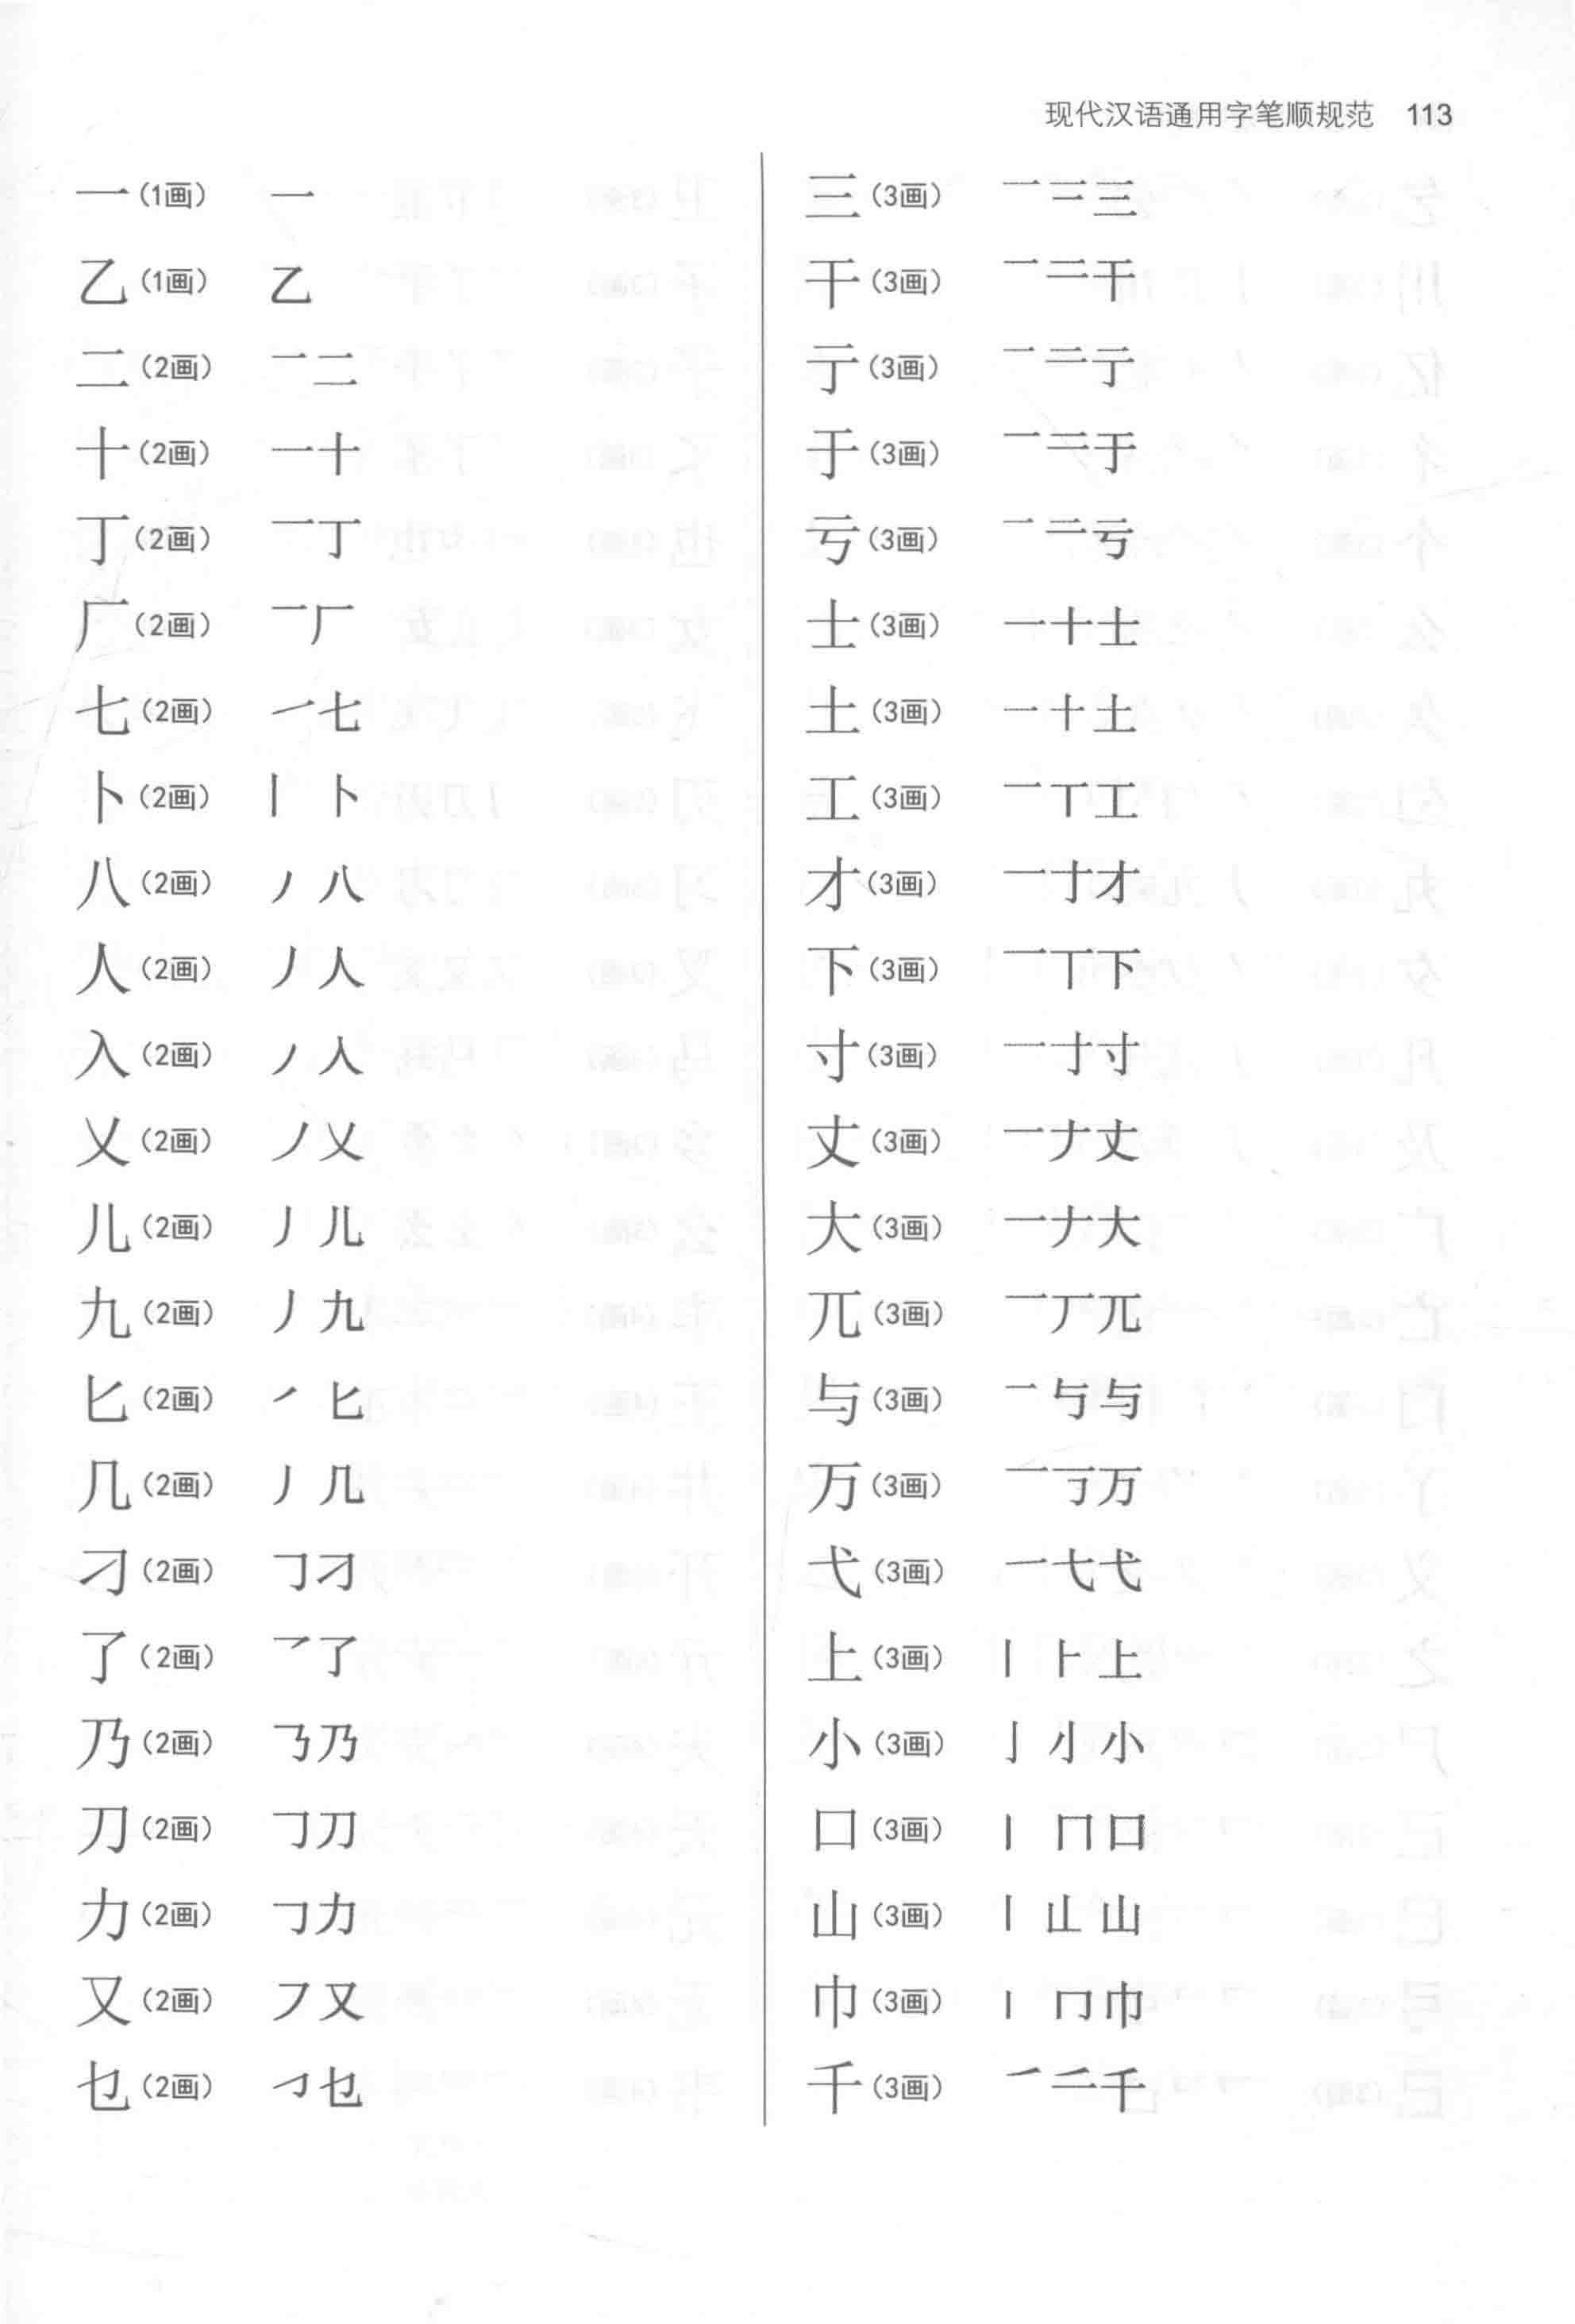 现代汉语通用字笔顺规范 113
一(1画) 一
乙(1画) 乙
二(2画) 一二
十(2画) 一十
丁(2画) 一丁
厂(2画) 一厂
七(2画) 一七
卜(2画) 丨卜
八(2画) 丿八
人(2画) 丿人
入(2画) 丿人
乂(2画) 丿乂
儿(2画) 丿儿
九(2画) 丿九
匕(2画) ㇒匕
几(2画) 丿几
刁(2画) 𠃌刁
了(2画) 乛了
乃(2画) ㇡乃
刀(2画) 𠃌刀
力(2画) 𠃌力
又(2画) ㇇又
乜(2画) ㇆乜
三(3画) 一二三
干(3画) 一二干
亍(3画) 一二亍
于(3画) 一二于
亏(3画) 一二亏
士(3画) 一十士
土(3画) 一十土
工(3画) 一丅工
才(3画) 一十才
下(3画) 一丅下
寸(3画) 一十寸
丈(3画) 一𠂇丈
大(3画) 一𠂇大
兀(3画) 一丆兀
与(3画) 一与与
万(3画) 一丁万
弋(3画) 一七弋
上(3画) 丨⺊上
小(3画) 亅小小
口(3画) 丨冂口
山(3画) 丨山山
巾(3画) 丨冂巾
千(3画) ㇒二千